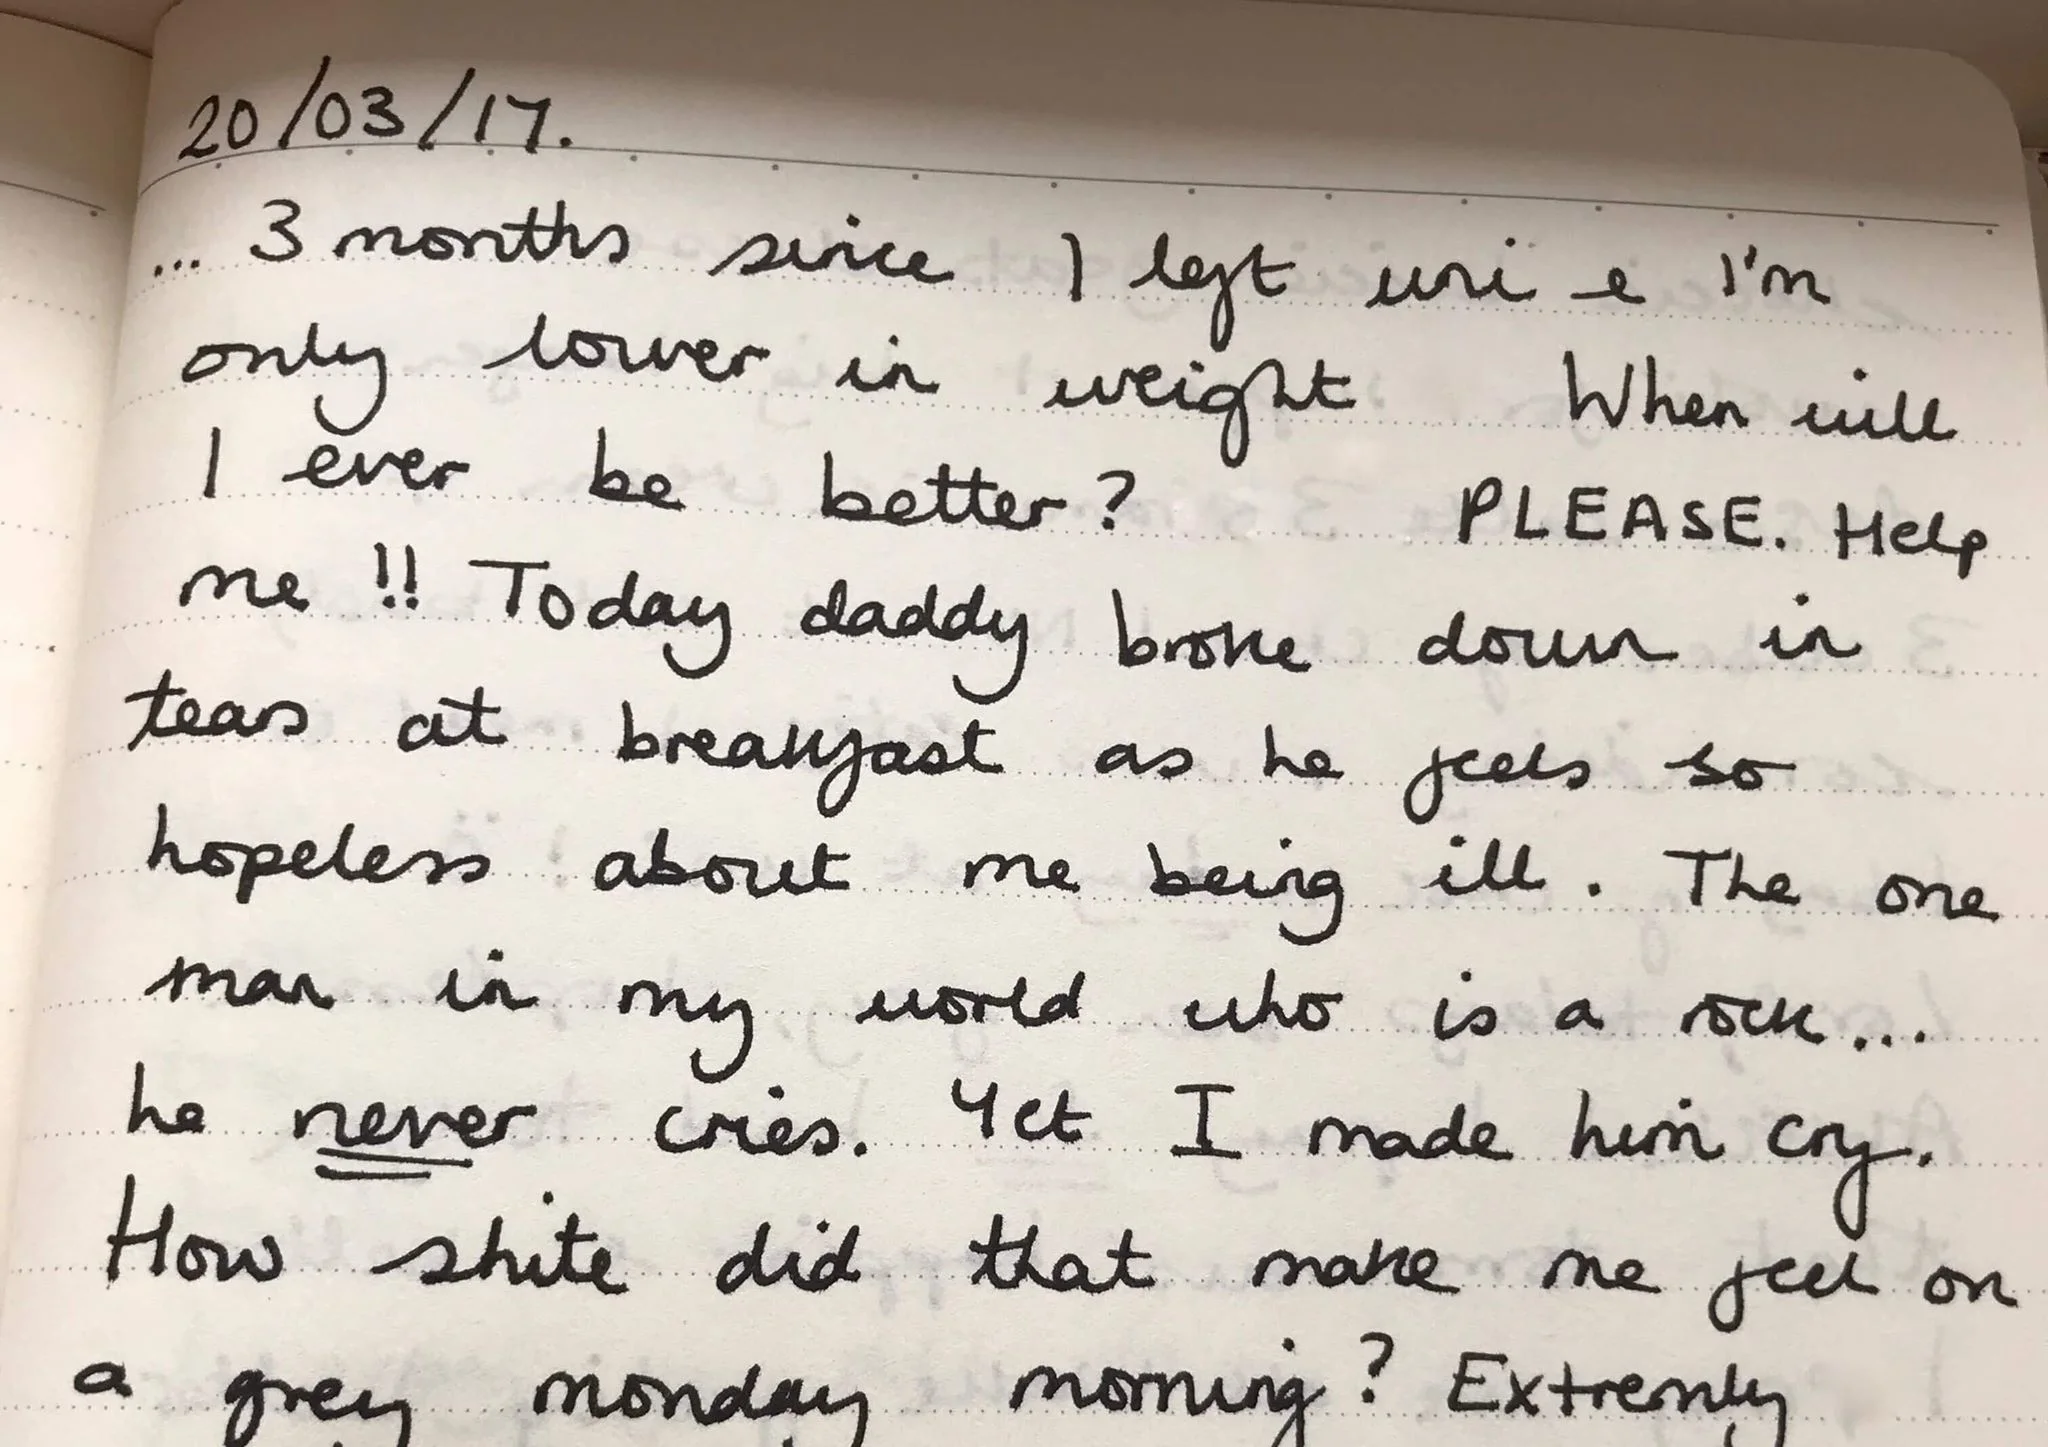 20/03/17.
... 3 months since I left uni & I'm
only lower in weight. When will
I ever be better? PLEASE. Help
me!! Today daddy broke down in
tears at breakfast as he feels so
hopeless about me being ill. The one
man in my world who is a rock...
he never cries. Yet I made him cry.
How shite did that make me feel on
a grey monday morning? Extremly